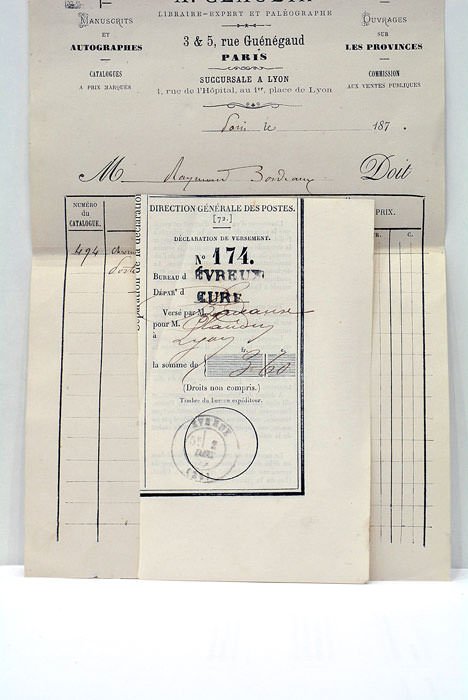 LIBRAIRE-EXPERT ET PALÉOGRAPHE
MANUSCRITS
ET
AUTOGRAPHES
CATALOGUES
A PRIX MARQUÉS
3 & 5, rue Guénégaud
PARIS
SUCCURSALE A LYON
1, rue de l'Hôpital, au 1er, place de Lyon
OUVRAGES
SUR
LES PROVINCES
COMMISSION
AUX VENTES PUBLIQUES
Paris le 187 .
M Raymond Bordeaux Doit
NUMÉRO
du
CATALOGUE.
PRIX.
C.
494
Séparation de la déclaration
DIRECTION GÉNÉRALE DES POSTES.
[72.]
DÉCLARATION DE VERSEMENT.
No 174.
BUREAU d ÉVREUX
DÉPAR' d EURE
Versé par M. Bordeaux
pour M. Claudin
à Lyon
fr. c.
la somme de 3 60
(Droits non compris.)
Timbre du bureau expéditeur.
EVREUX
2